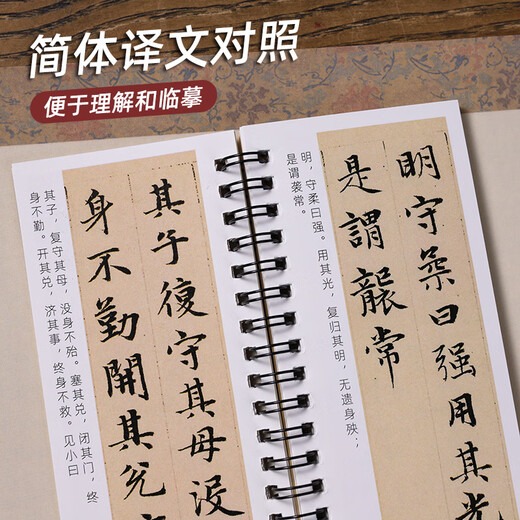 简体译文对照
便于理解和临摹
其子，复守其母，没身不殆。塞其兑，闭其门，终
身不勤。开其兑，济其事，终身不救。见小曰
其子復守其母没
身不勤開其兌
明，守柔曰强。用其光，复归其明，无遗身殃；
是谓袭常。
明守柔曰强用其光
是謂襲常